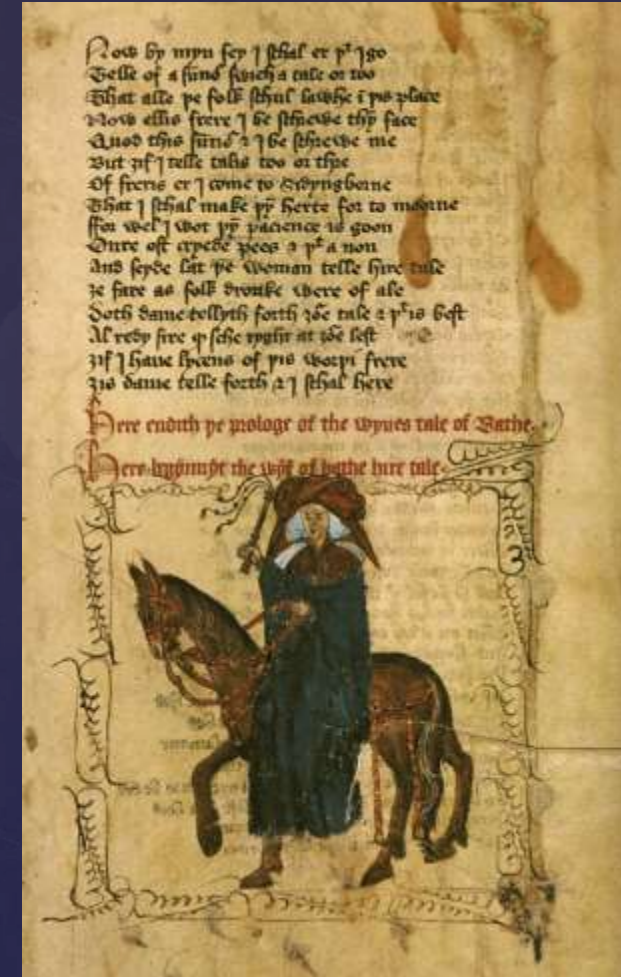 Now by myn fey I schal er þt I go
Telle of a sūnō swich a tale or too
That alle þe folk schul lawhe ī þis place
Now ellis frere I be schrewe thy face
Quod this sūnō & I be schrewe me
But ȝif I telle talis too or thre
Of freris er I come to Sydyngborne
That I schal make þȳ herte for to moorne
ffor wel I wot þȳ pacience is goon
Oure ost cryede pees & þt a non
And seyde lat þe woman telle hire tale
ȝe fare as folk dronke were of ale
Doth dame tellyth forth ȝōe tale & þt is best
Al redy sire qd sche ryght as ȝōe lest
ȝif I haue lycens of þis worþi frere
ȝis dame telle forth & I schal here
Here endith þe prologe of the wyues tale of Bathe
Here begȳnnyþ the wȳf of bathe hire tale